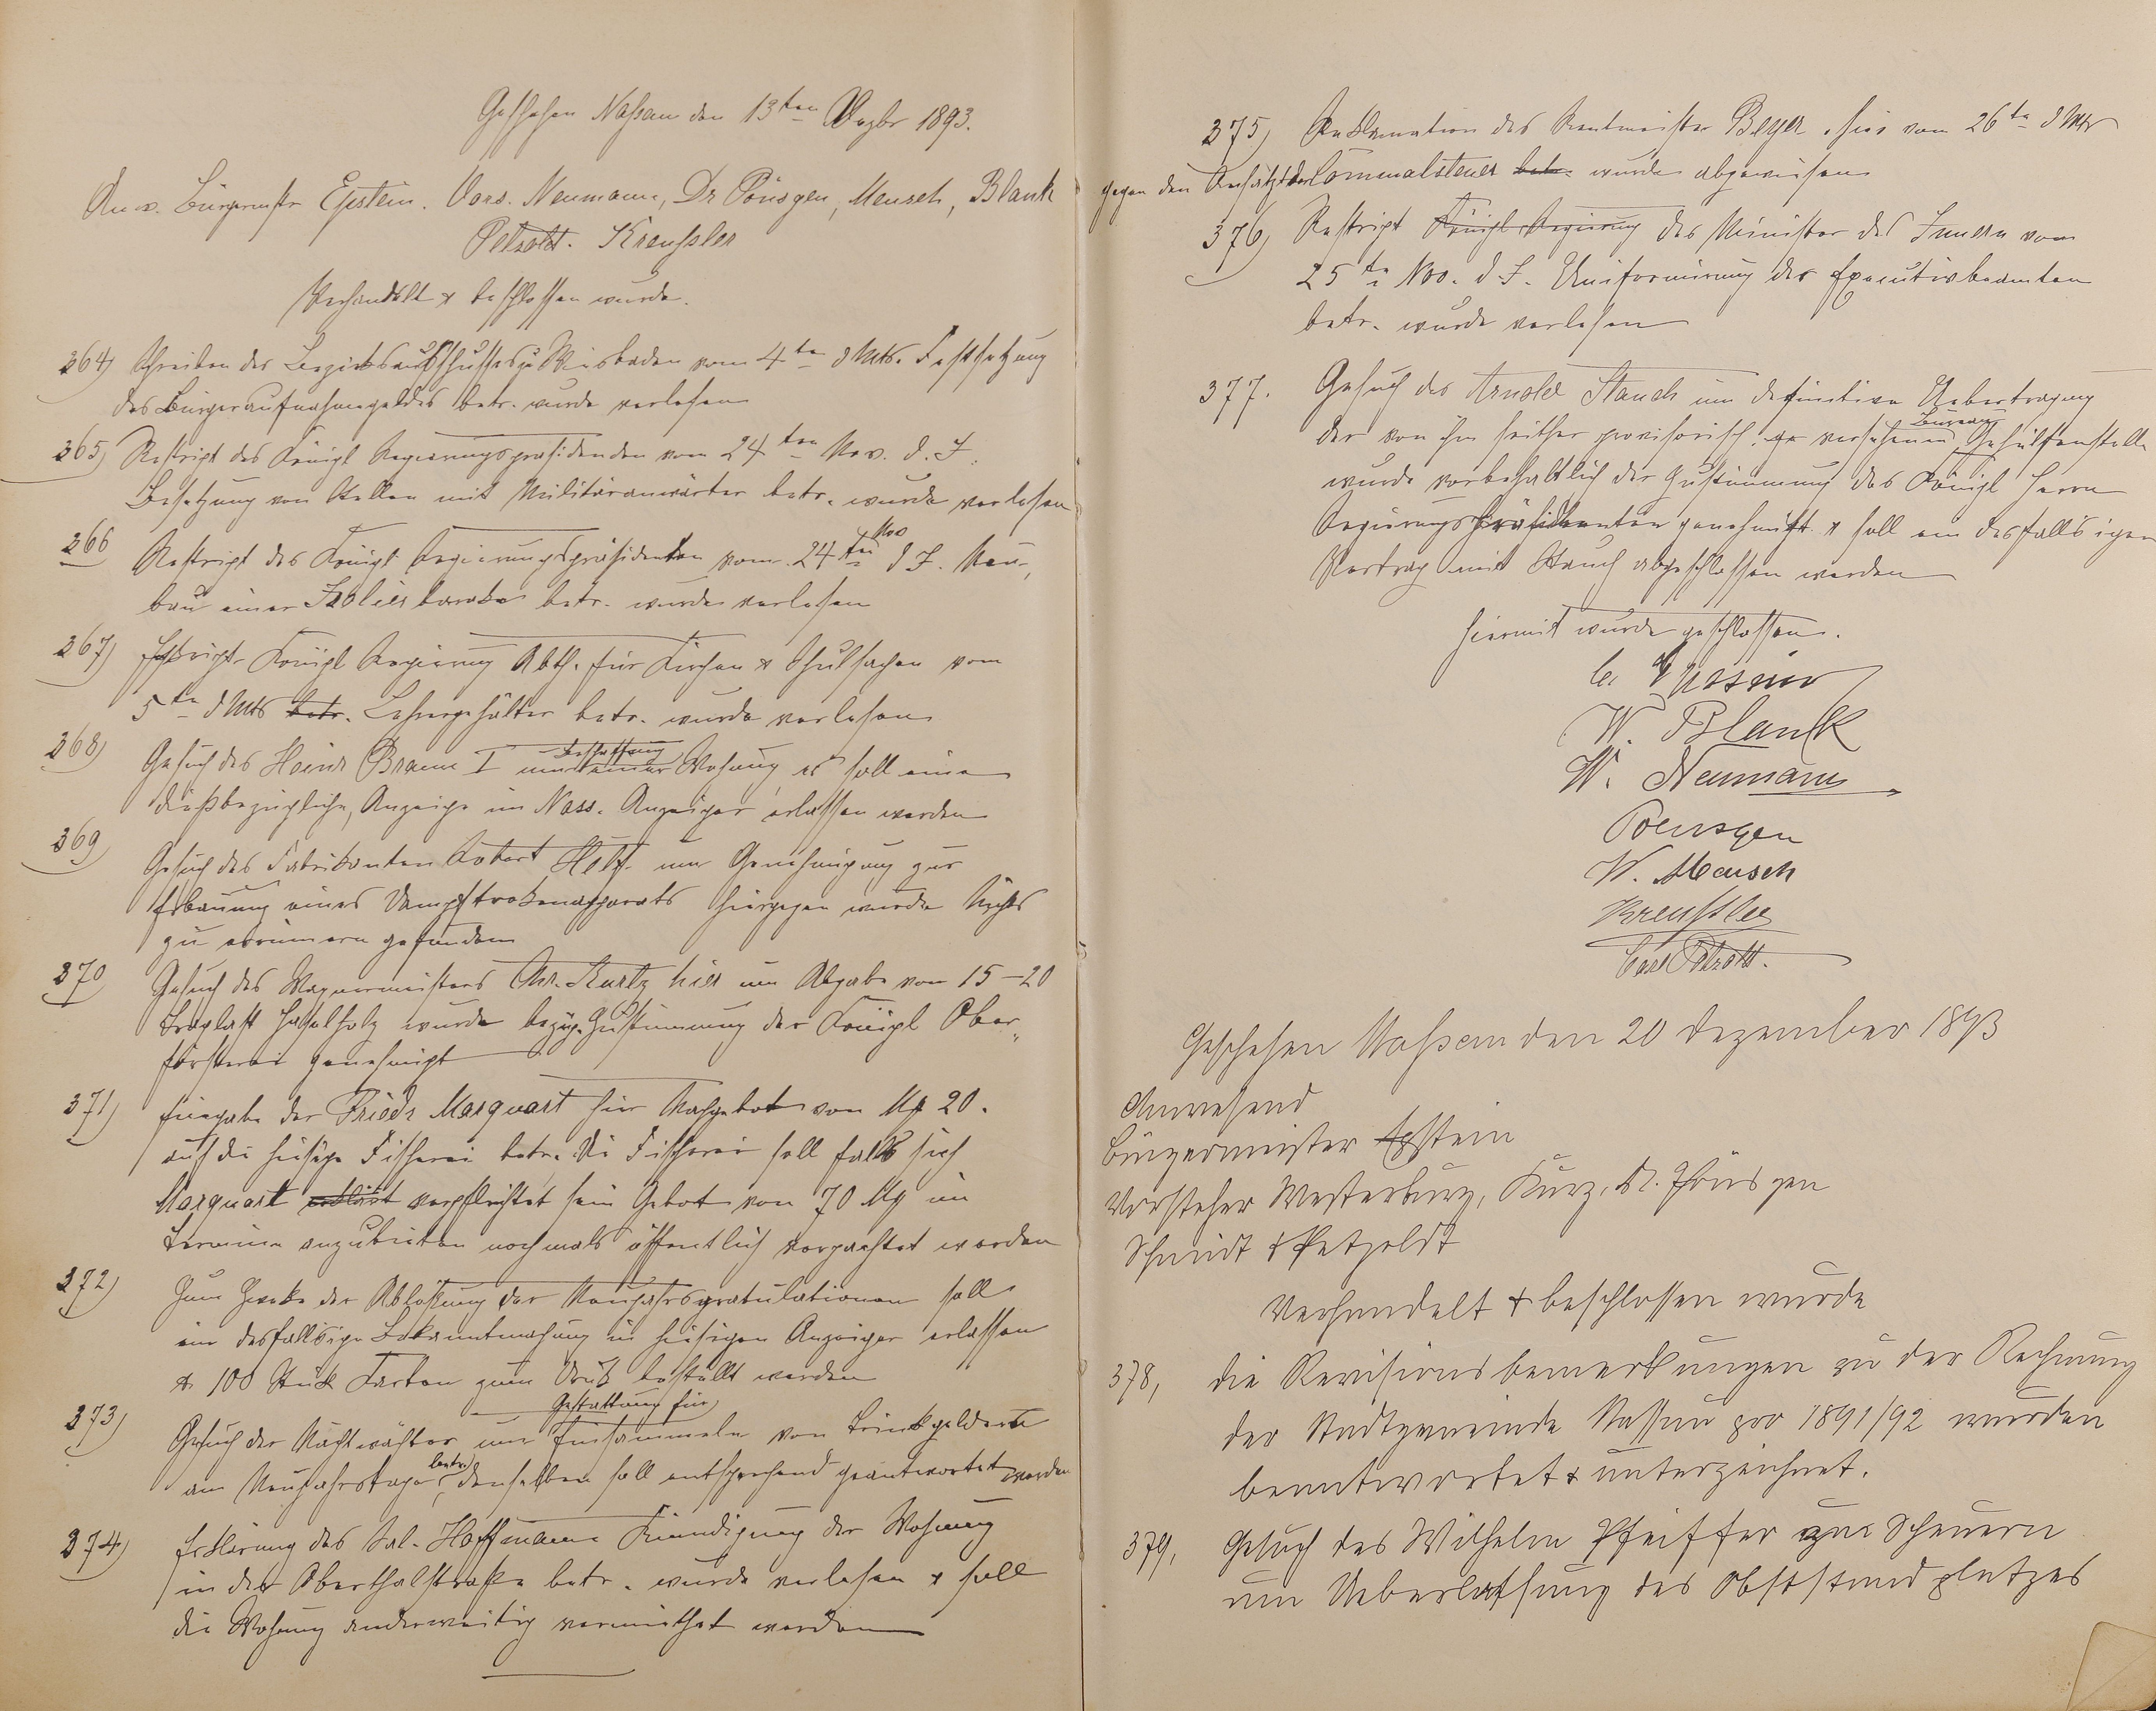 Geschehen Naßau den 13ten Dezbr 1893.
Anw. Bürgermstr Epstein. Vors. Neumann, Dr Pönsgen, Mensch, Blank
Petzoldt. Kreußler
Verhandelt & beschlossen wurde.
364) Schreiben des Bezirksausschusses zu Wiesbaden vom 4ten d Mts. Festsetzung
des Bürgeraufnahmegeldes betr. wurde verlesen
365) Reskript des Königl Regierungspräsidenden vom 24ten Nov. d. J.
Besetzung von Stellen mit Militäranwärter betr. wurde verlesen
366 Reskript des Königl Regierungspräsidenten vom 24ten Nov d J. Neu-
bau einer Isolierbarake betr. wurde verlesen
367) Reskript Königl Regierung Abth. für Kirchen & Schulsachen vom
5ten d Mts betr. Lehrergehälter betr. wurde verlesen
368) Gesuch des Heinr Braun I um Beschaffung einer Wohnung es soll eine
dießbezügliche Anzeige im Nass. Anzeiger erlassen werden
369 Gesuch des Fabrikanten Robert Helf um Genehmigung zur
Erbauung eines Dampftrokenapparats hiergegen wurde Nichts
zu erinnern gefunden
370 Gesuch des Wagnermeisters Chr. Kurtz hier um Abgabe von 15-20
Traglast Haselholz wurde bezügl. Zustimmung der Königl Ober-
försterei genehmigt
371) Eingabe der Friedr Marquart hier Nachgebot von Mk 20.
auf die hiesige Fischerei betr. Die Fischerei soll falls sich
Marquart erklärt verpflichtet sein Gebot von 70 Mk im
Termine anzubieten nochmals öffentlich verpachtet werden
372) Zum Zweke der Ablösung der Neujahrsgratulationen soll
eine desfallsige Bekanntmachung in hiesigen Anzeiger erlassen
& 100 Stük Karten zum Druk bestellt werden
373) Gesuch der Nachtwächter um Gestattung für Einsammeln von Trinkgeldern
am Neujahrstage betr, denselben soll entsprechend geantwortet werden
374) Erklärung des Sal. Hoffmann Kündigung der Wohnung
in der Oberthalstraße betr. wurde verlesen & soll
die Wohnung anderweitig vermiethet werden
375) Reklamation des Rentmeister Beyer hier vom 26ten d Mts
gegen den Ansatz der Communalsteuer betr. wurde abgewiesen
376) Reskript Königl Regierung des Minister des Innern vom
25ten Nov. d J. Uniformirung der Executivbeamten
betr. wurde verlesen
377. Gesuch des Arnold Stauch um definitive Uebertragung
der von ihm seither provisorisch versehenen Bureau Gehülfenstelle
wurde vorbehaltlich der Zustimmung des Königl Herrn
Regierungspräsidenten genehmigt & soll ein desfallsiger
Vertrag mit Stauch abgeschlossen werden
Hiermit wurde geschlossen.
W. Blank
W. Neumann
Poensgen
W. Mensch
Kreußler
Carl Petzoldt.
Geschehen Naßau den 20 Dezember 1893
Anwesend
Bürgermeister Epstein
Vorsteher Westerburg, Kurz, Dr. Pönsgen
Schmidt & Petzoldt
Verhandelt & beschlossen wurde
378, die Revisionsbemerkungen zu der Rechnung
der Stadtgemeinde Nassau pro 1891/92 wurden
beantwortet & unterzeichnet.
379, Gesuch des Wilhelm Pfeiffer zur Scheuern
um Ueberlassung des Obststandplatzes